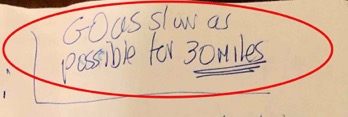 GO as slow as
possible for 30 miles